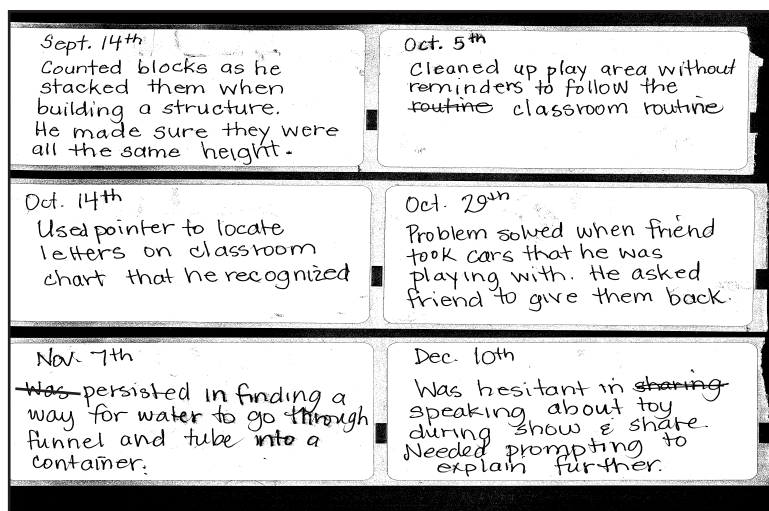 Sept. 14th
Counted blocks as he
stacked them when
building a structure.
He made sure they were
all the same height.
Oct. 5th
Cleaned up play area without
reminders to follow the
~~routine~~ classroom routine
Oct. 14th
Used pointer to locate
letters on classroom
chart that he recognized
Oct. 29th
Problem solved when friend
took cars that he was
playing with. He asked
friend to give them back.
Nov. 7th
~~Was~~ persisted in finding a
way for water to go through
funnel and tube into a
container.
Dec. 10th
Was hesitant in ~~sharing~~
speaking about toy
during show & share.
Needed prompting to
explain further.